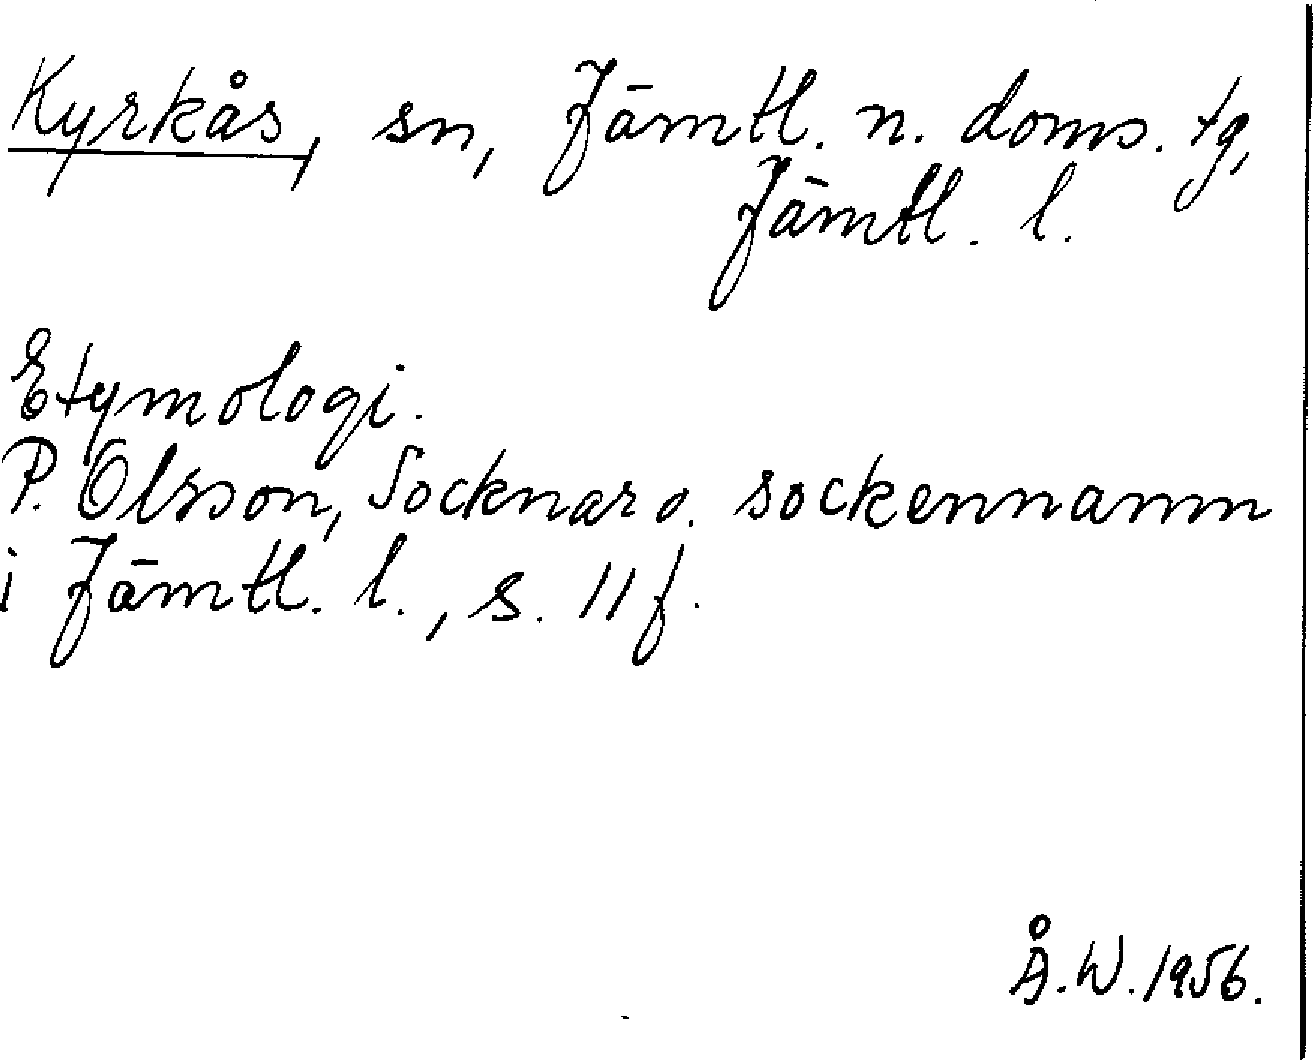 Kyrkås, sn, Jämtl. n. doms. tg,
Jämtl. l.
Etymologi.
P. Olsson, Socknar o. sockennamn
i Jämtl. l., s. 11 f.
Å.W. 1956.